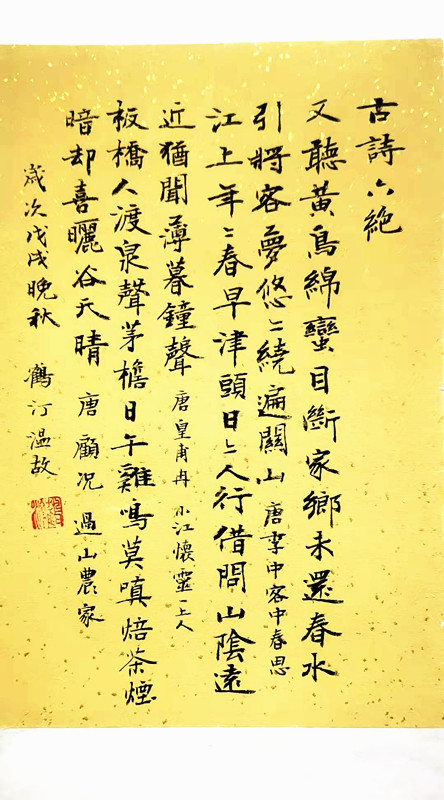 古詩六絶
又聽黃鳥綿蠻目斷家鄉未還春水
引將客夢悠〻繞遍關山唐李中客中春思
江上年〻春早津頭日〻人行借問山陰遠
近猶聞薄暮鐘聲唐皇甫冉小江懷靈一上人
板橋人渡泉聲茅檐日午雞鳴莫嗔焙茶煙
暗却喜曬谷天晴唐顧况過山農家
歲次戊戌晚秋鶴汀温故